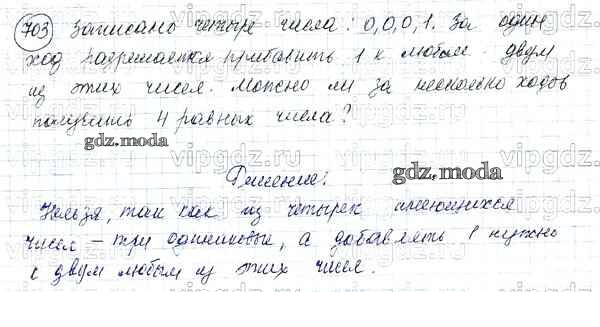 703 Записано четыре числа: 0,0,0,1. За один
ход разрешается прибавить 1 к любым двум
из этих чисел. Можно ли за несколько ходов
получить 4 равных числа?
gdz.moda
Решение:
gdz.moda
Нельзя, так как из четырех имеющихся
чисел – три одинаковые, а добавлять 1 нужно
к двум любым из этих чисел.